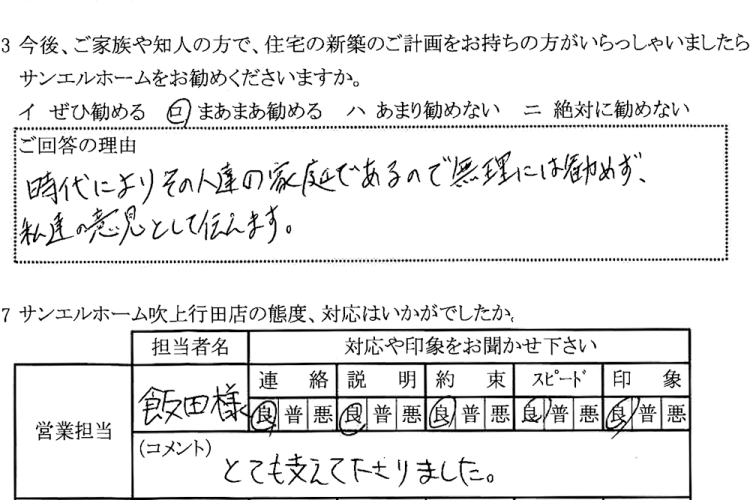 3 今後、ご家族や知人の方で、住宅の新築のご計画をお持ちの方がいらっしゃいましたら
サンエルホームをお勧めくださいますか。
イ ぜひ勧める ロ まあまあ勧める ハ あまり勧めない ニ 絶対に勧めない
ご回答の理由
時代によりその人達の家庭であるので無理には勧めず、
私達の意見として伝えます。
7 サンエルホーム吹上行田店の態度、対応はいかがでしたか。
担当者名 対応や印象をお聞かせ下さい
連絡 説明 約束 スピード 印象
営業担当 飯田様 良 普 悪 良 普 悪 良 普 悪 良 普 悪 良 普 悪
(コメント)
とても支えて下さりました。